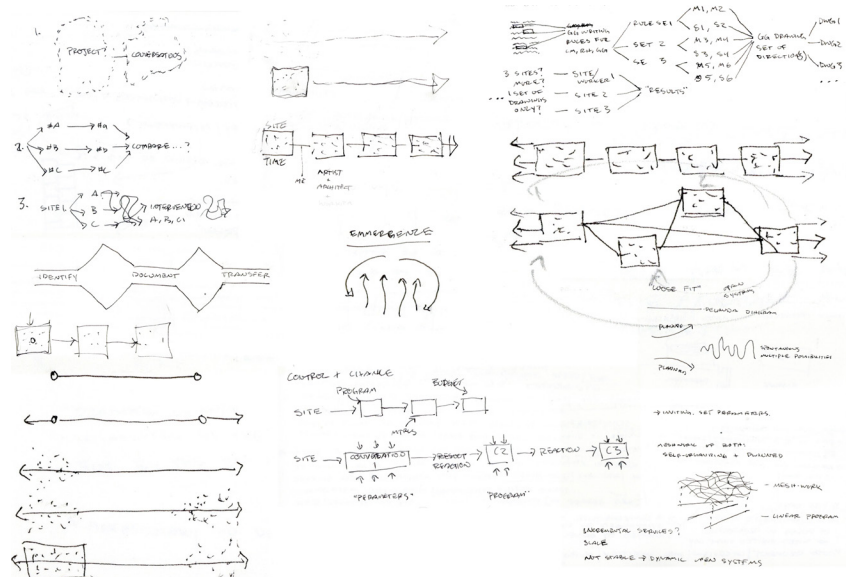 1.
PROJECT
CONVERSATIONS
2.
#A
#a
#B
#b
COMPARE...?
#C
#c
3.
SITE
A
B
C
INTERVENTION
A, B, C,
IDENTIFY
DOCUMENT
TRANSFER
a
SITE
TIME
ME
ARTIST
+
ARCHITECT
EMMERGENCE
CONTROL + CHANCE
PROGRAM
BUDGET
SITE
MTRLS
SITE
CONVERSATION
1
RESULT
REACTION
C2
REACTION
C3
"PARAMETERS"
"PROGRAM"
GG WRITING
RULES FOR
LM, RH, GG
RULE SET 1
SET 2
SE 3
M1, M2
S1, S2
M3, M4
S3, S4
M5, M6
S5, S6
GG DRAWING
SET OF
DIRECTION(S)
DWG 1
DWG 2
DWG 3
...
3 SITES?
MORE?
1 SET OF
DRAWINGS
ONLY?
...
SITE/
WORKER 1
SITE 2
SITE 3
"RESULTS"
"LOOSE FIT"
SYSTEM
DIAGRAM
PLANNED
PLANNED
SPONTANEOUS
MULTIPLE POSSIBILITIES
→ WRITING. SET PARAMETERS.
MESHWORK OF DATA:
SELF-ORGANIZING + PLANNED
MESH-WORK
LINEAR PROGRAM
INCREMENTAL SERVICES?
SCALE
NOT STABLE → DYNAMIC OPEN SYSTEMS